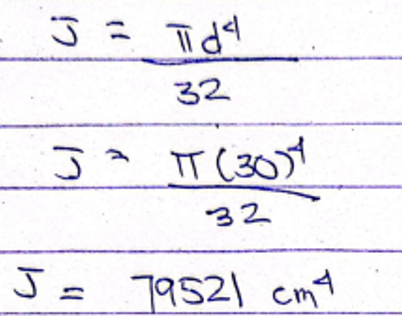 J = πd⁴
32
J = π(30)⁴
32
J = 79521 cm⁴